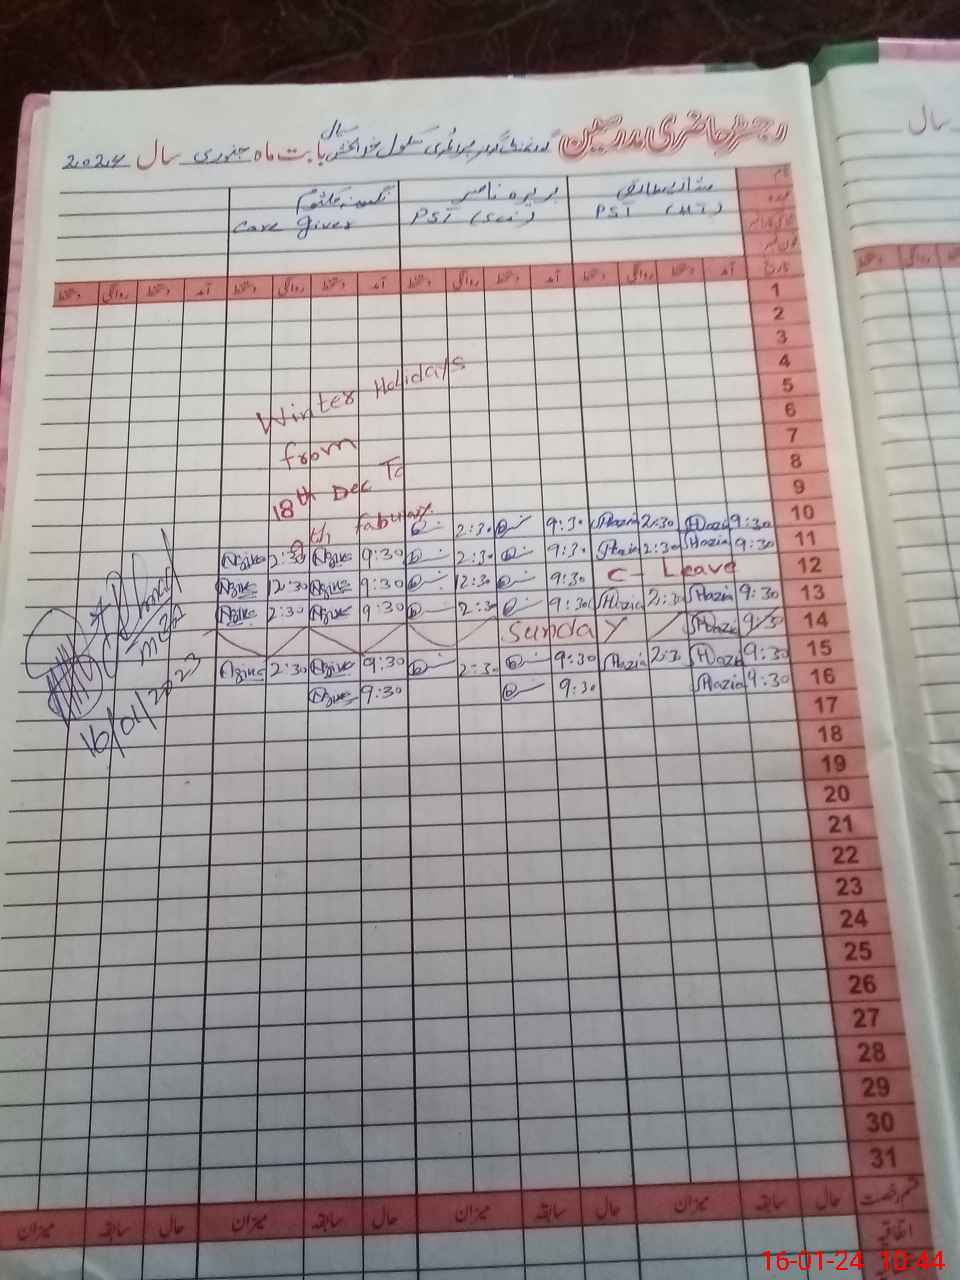 رجسٹر حاضری مدرسین گورنمنٹ گرلز پرائمری سکول بابت ماہ جنوری سال 2024
نام
عہدہ
PST (HT) PST (Sci) Care giver
تاریخ آمد دستخط روانگی دستخط آمد دستخط روانگی دستخط آمد دستخط روانگی دستخط آمد دستخط روانگی دستخط
1
2
3
4
Winter Holidays
5
6
from
7
8
18th Dec To
9
th fabuary
10 9:30 Shazia 2:30 Shazia 9:30 2:30
11 9:30 Shazia 2:30 Shazia 9:30 2:30 9:30 2:30
12 C- Leave 9:30 12:30 9:30 12:30
13 9:30 Shazia 2:30 Shazia 9:30 2:30 9:30 2:30
14 9:30 Shazia Sunday
15 9:30 Shazia 2:30 Shazia 9:30 2:30 9:30 2:30
16 9:30 Shazia 9:30 9:30
16/01/2023
17
18
19
20
21
22
23
24
25
26
27
28
29
30
31
قسم رخصت حال سابقہ میزان حال سابقہ میزان حال سابقہ میزان حال سابقہ میزان
اتفاقیہ
سال
16-01-24 10:44